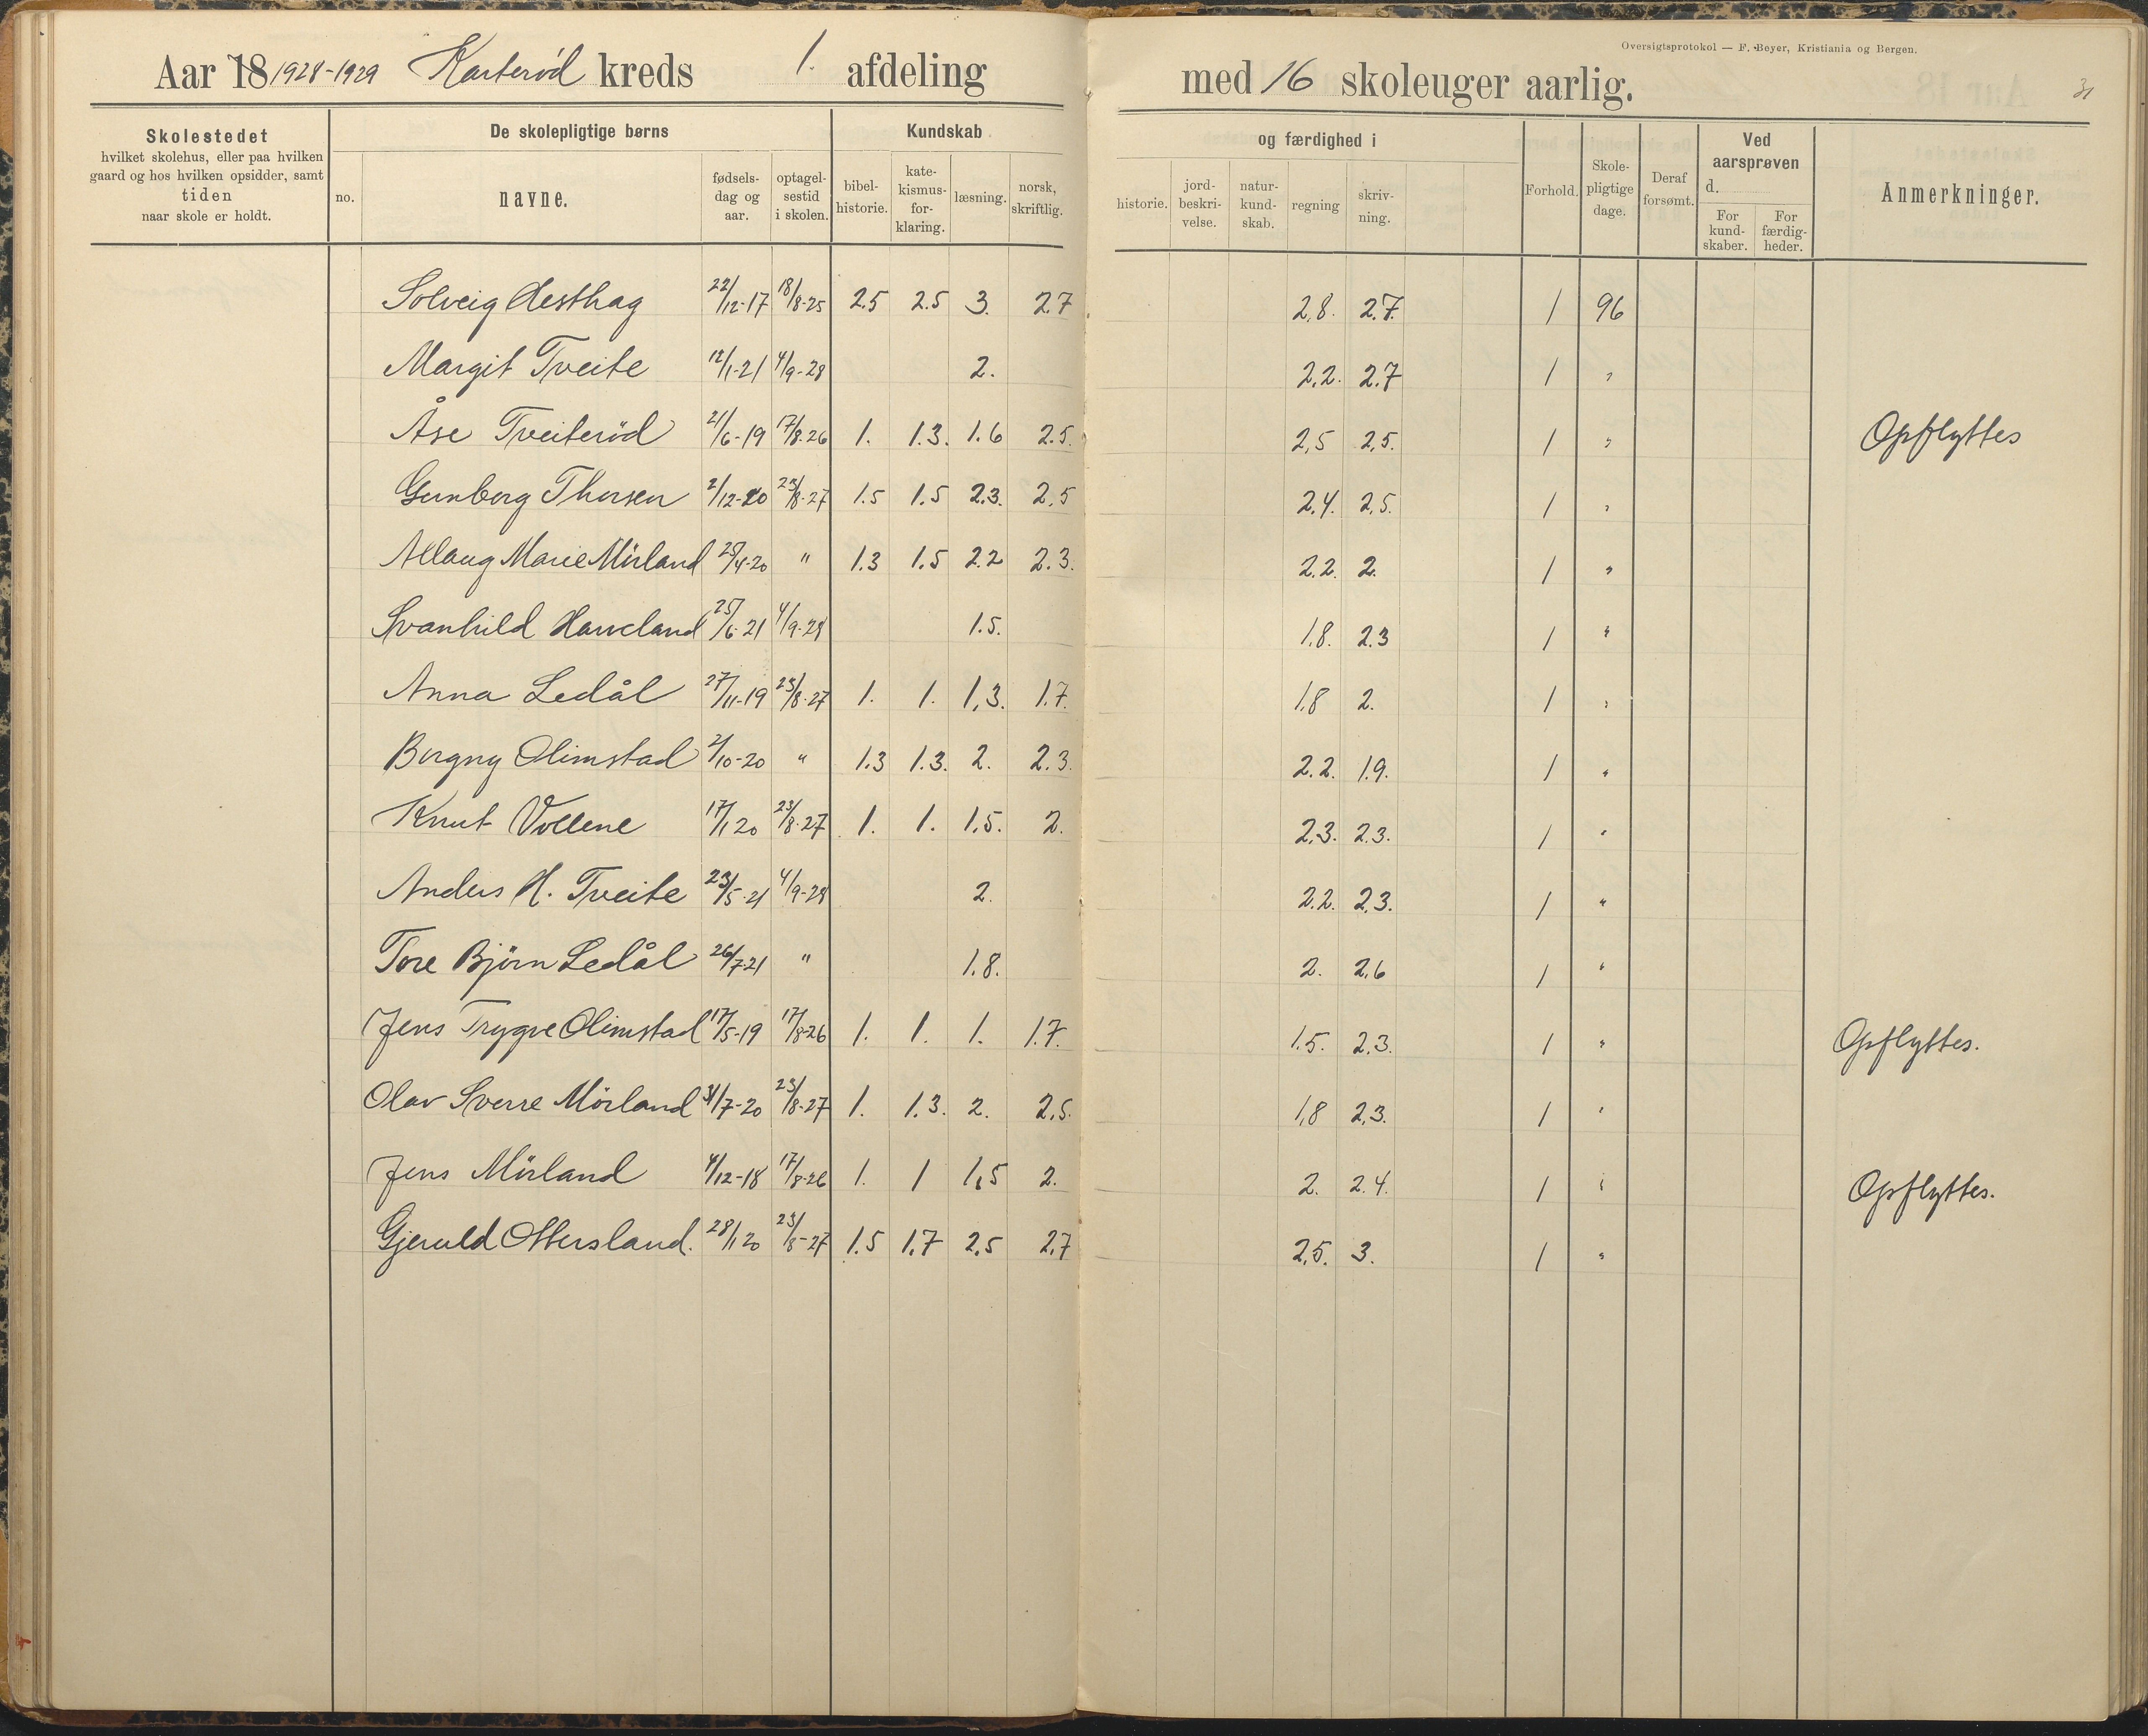 Oversigtsprotokol — F. Beyer, Kristiania og Bergen.
Aar 18 1928-1929 Karterød kreds 1. afdeling med 16 skoleuger aarlig. 31
Skolestedet hvilket skolehus, eller paa hvilken gaard og hos hvilken opsidder, samt tiden naar skole er holdt.
De skolepligtige børns
no. navne. fødselsdag og aar. optagelsestid i skolen.
Kundskab og færdighed i
bibelhistorie. katekismusforklaring. læsning. norsk, skriftlig. historie. jordbeskrivelse. naturkundskab. regning skrivning.
Forhold. Skolepligtige dage. Deraf forsømt. Ved aarsprøven d. For kundskaber. For færdigheder. Anmerkninger.
Solveig Hesthag 22/12-17 18/8-25 2.5 2.5 3. 2.7 2.8. 2.7. 1 96
Margit Tveite 12/1-21 4/9-28 2. 2.2. 2.7 1 "
Åse Tveiterød 21/6-19 17/8-26 1. 1.3. 1.6 2.5. 2.5 2.5. 1 " Opflyttes
Gunborg Thorsen 2/12-20 23/8-27 1.5 1.5 2.3. 2.5 2.4. 2.5. 1 "
Allaug Marie Mörland 25/4-20 " 1.3 1.5 2.2 2.3. 2.2. 2. 1 "
Svanhild Haveland 25/6-21 4/9-28 1.5. 1.8. 2.3 1 "
Anna Ledål 27/11-19 23/8-27 1. 1. 1.3. 1.7. 1.8 2. 1 "
Borgny Olimstad 2/10-20 " 1.3 1.3. 2. 2.3. 2.2. 1.9. 1 "
Knut Vollene 17/1 20 23/8-27 1. 1. 1.5. 2. 2.3. 2.3. 1 "
Anders H. Tveite 23/5-21 4/9-28 2. 2.2. 2.3. 1 "
Tore Björn Ledål 26/7-21 " 1.8. 2. 2.6 1 "
Jens Trygve Olimstad 17/5-19 17/8-26 1. 1. 1. 1.7. 1.5. 2.3. 1 " Opflyttes.
Olav Sverre Mörland 31/7-20 23/8-27 1. 1.3. 2. 2.5. 1.8 2.3. 1 "
Jens Mörland 4/12-18 17/8-26 1. 1 1.5 2. 2. 2.4. 1 " Opflyttes.
Gjeruld Ottersland. 28/1 20 23/8-27 1.5 1.7 2.5 2.7 2.5. 3. 1 "